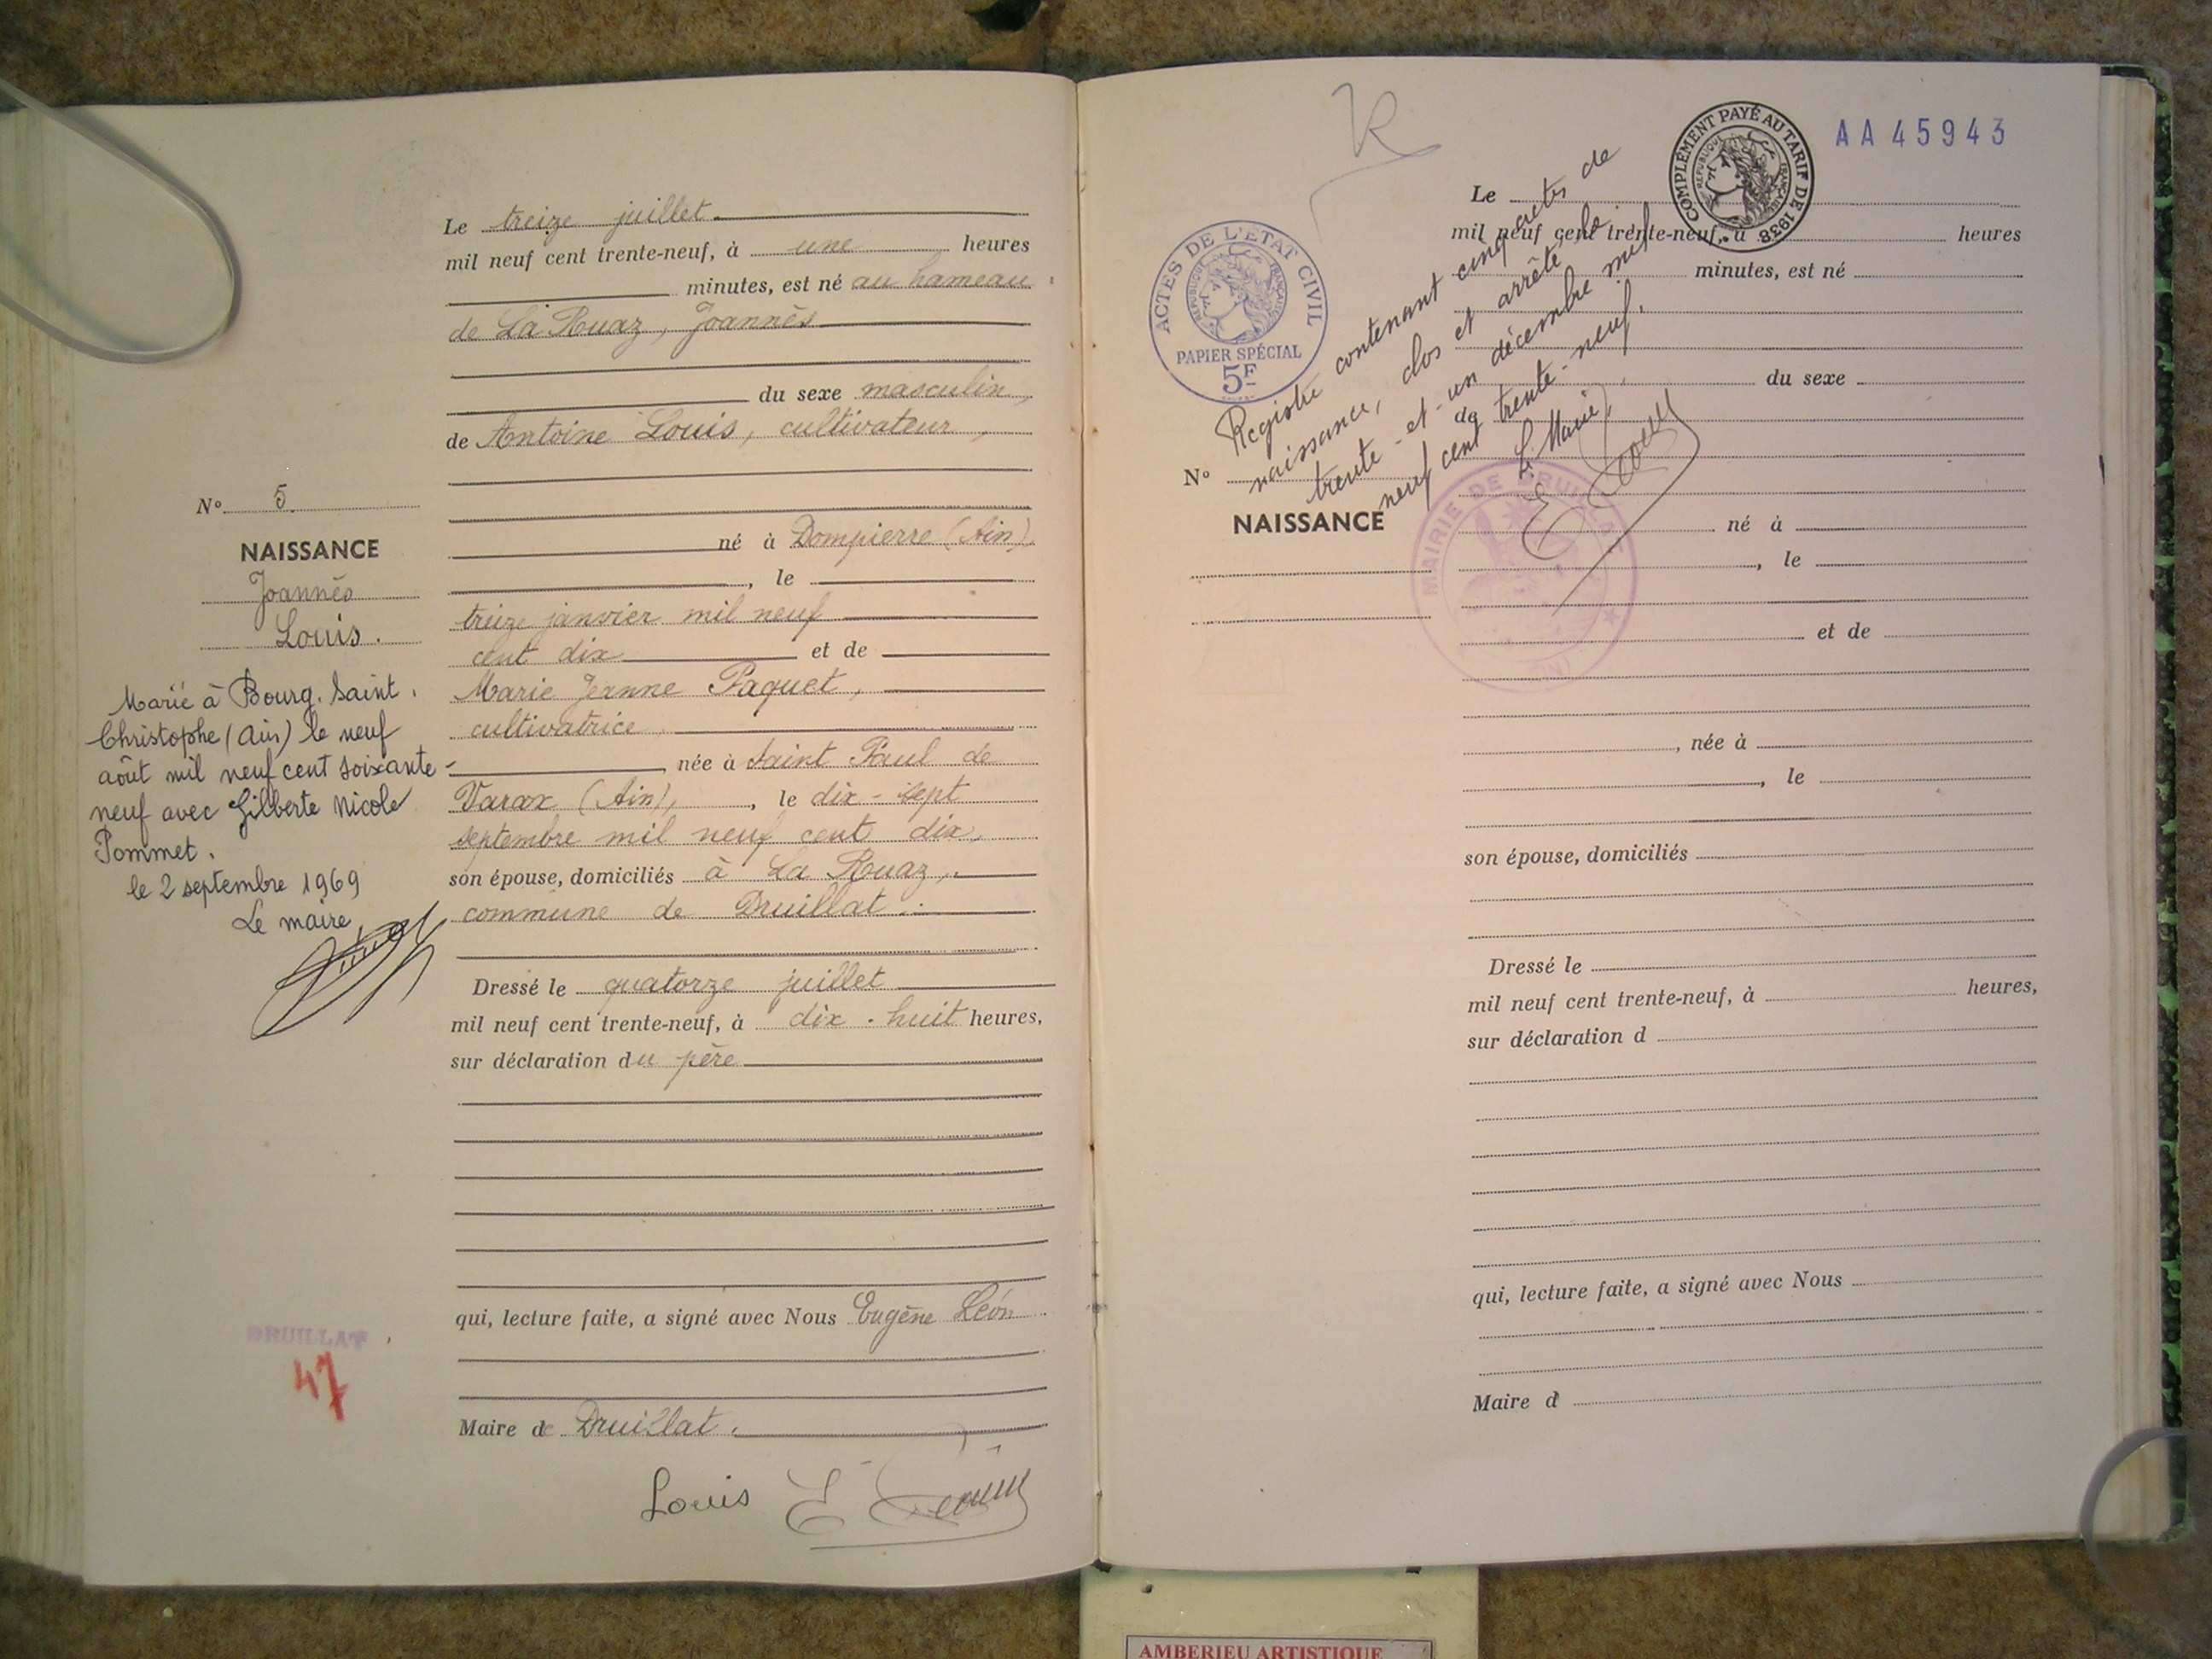 Le treize juillet
mil neuf cent trente-neuf, à une heures
minutes, est né au hameau
de La Ruaz, Joannès
du sexe masculin,
de Antoine Louis, cultivateur,
né à Dompierre (Ain)
, le
treize janvier mil neuf
cent dix et de
Marie Jeanne Paquet,
cultivatrice
, née à Saint Paul de
Varax (Ain), , le dix-sept
septembre mil neuf cent dix,
son épouse, domiciliés à La Ruaz,
commune de Druillat.
Dressé le quatorze juillet
mil neuf cent trente-neuf, à dix-huit heures,
sur déclaration du père
qui, lecture faite, a signé avec Nous Eugène Léon
Maire de Druillat.
Louis E
N° 5.
NAISSANCE
Joannès
Louis.
Marié à Bourg. Saint.
Christophe (Ain) le neuf
août mil neuf cent soixante-
neuf avec Gilberte Nicole
Pommet.
le 2 septembre 1969
Le maire,
DRUILLAT
47
R
AA 45943
COMPLÉMENT PAYÉ AU TARIF DE 1938
RÉPUBLIQUE FRANÇAISE
ACTES DE L'ÉTAT CIVIL
RÉPUBLIQUE FRANÇAISE
PAPIER SPÉCIAL
5F
Registre contenant cinq actes de
naissance, clos et arrêté le
trente-et-un décembre mil
neuf cent trente-neuf.
Le Maire,
E
MAIRIE DE DRUILLAT
(AIN)
Le
mil neuf cent trente-neuf, à heures
minutes, est né
du sexe
de
N°
NAISSANCE
né à
, le
et de
, née à
, le
son épouse, domiciliés
Dressé le
mil neuf cent trente-neuf, à heures,
sur déclaration d
qui, lecture faite, a signé avec Nous
Maire d
AMBERIEU ARTISTIQUE